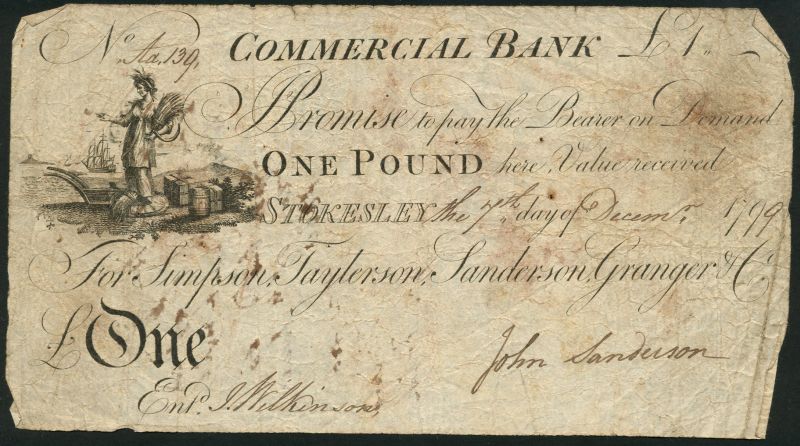 No. Aa,139, COMMERCIAL BANK £1,,—
I PROMISE to pay the Bearer on Demand
ONE POUND here, Value received
STOKESLEY the 7th day of Decemr. 1799
For Simpson, Taylerson, Sanderson, Granger & Co.
£ One
John Sanderson
Entd. J. Wilkinson